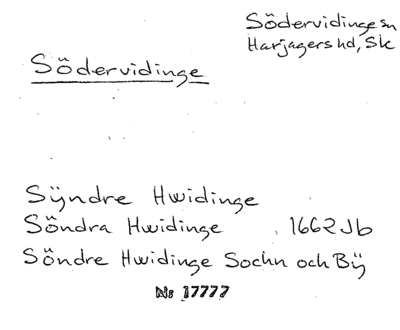 Södervidinge sn
Harjagers hd, Sk
Södervidinge
Sÿndre Hwidinge
Söndra Hwidinge 1662 Jb
Söndre Hwidinge Sochn och Bÿ
Nr 17777